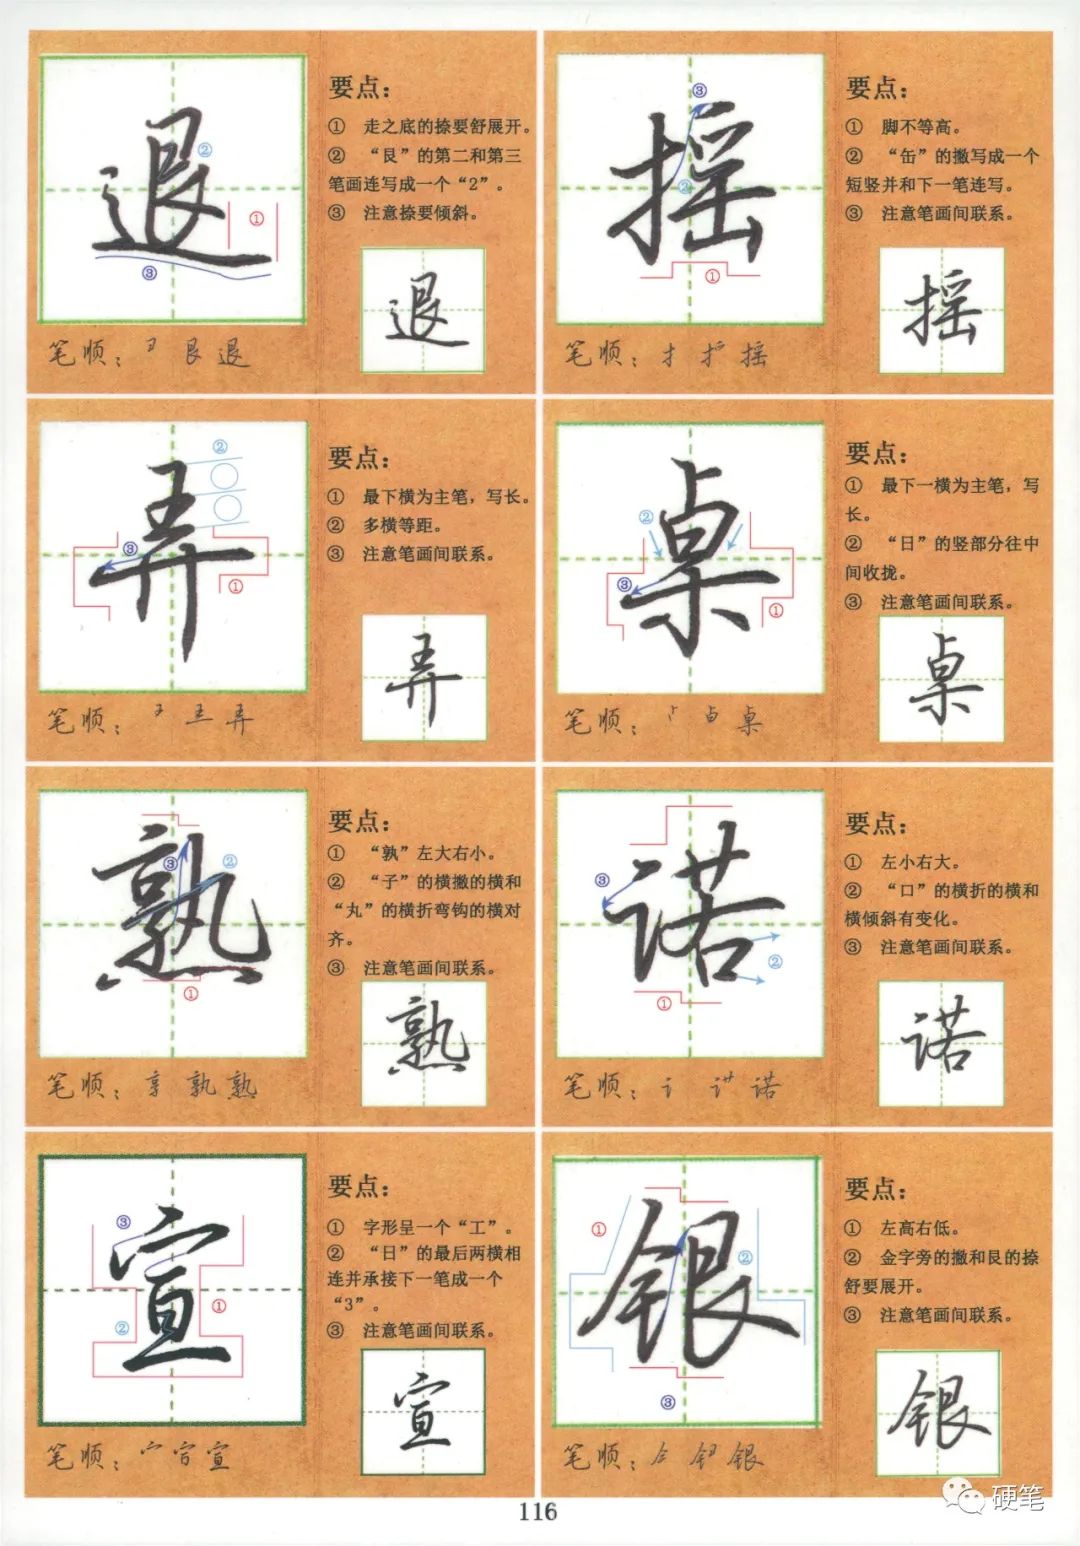 退
要点：
① 走之底的捺要舒展开。
② “艮”的第二和第三
笔画连写成一个“2”。
③ 注意捺要倾斜。
②
①
③
退
笔顺：𠃌 艮 退
摇
要点：
① 脚不等高。
② “缶”的撇写成一个
短竖并和下一笔连写。
③ 注意笔画间联系。
③
②
①
摇
笔顺：扌 摇
弄
要点：
① 最下横为主笔，写长。
② 多横等距。
③ 注意笔画间联系。
②
③
①
弄
笔顺：王 弄
桌
要点：
① 最下一横为主笔，写
长。
② “日”的竖部分往中
间收拢。
③ 注意笔画间联系。
②
③
①
桌
笔顺：⺊ 桌
熟
要点：
① “孰”左大右小。
② “子”的横撇的横和
“丸”的横折弯钩的横对
齐。
③ 注意笔画间联系。
③
②
①
熟
笔顺：享 孰 熟
诺
要点：
① 左小右大。
② “口”的横折的横和
横倾斜有变化。
③ 注意笔画间联系。
③
②
①
诺
笔顺：讠 诺
宣
要点：
① 字形呈一个“工”。
② “日”的最后两横相
连并承接下一笔成一个
“3”。
③ 注意笔画间联系。
③
①
②
宣
笔顺：宀 宣
银
要点：
① 左高右低。
② 金字旁的撇和艮的捺
舒要展开。
③ 注意笔画间联系。
①
②
③
银
笔顺：银
116
硬笔